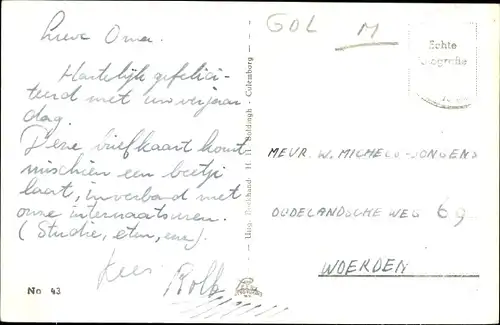 Lieve Oma.
Hartelijk gefelici-
teerd met uw verjaar
dag.
Deze briefkaart komt
misschien een beetje
laat, in verband met
onze internaatsuren.
(Studie, eten, enz).
Kees
Rolf
No 43
Uitg. Boekhand. H. D. Boldingh - Culemborg -
GOL M
Echte
fotografie
MEVR. W. MICHELS-JONGENS
OUDELANDSCHE WEG 69
WOERDEN